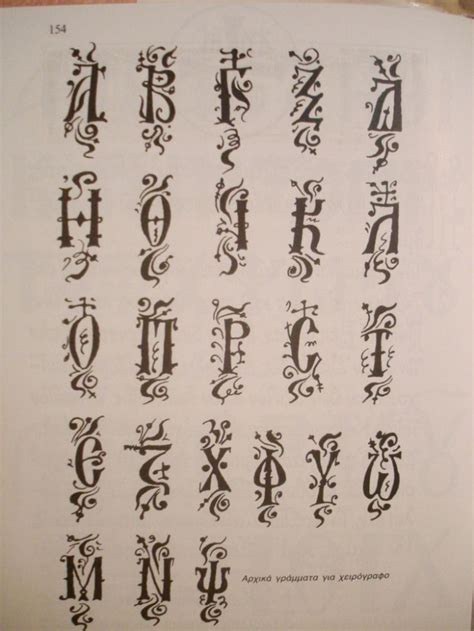 154
Α Β Γ Ζ Δ
Η Θ Ι Κ Λ
Ο Π Ρ Ϲ Τ
Є Ξ Χ Φ Υ Ѡ
Μ Ν Ψ
Αρχικά γράμματα για χειρόγραφο